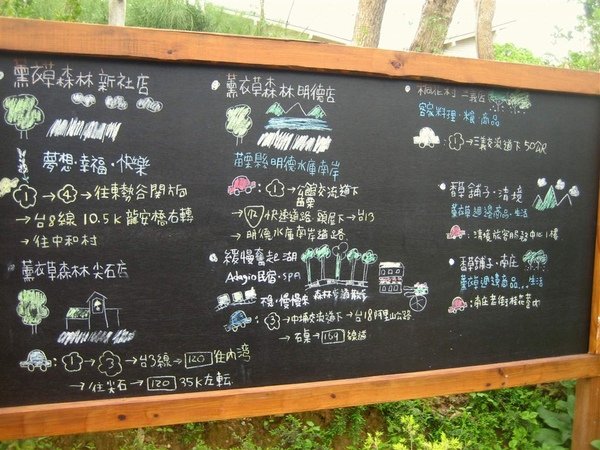 薰衣草森林 新社店
夢想・幸福・快樂
1→4→往東勢谷関方向
→台8線 10.5K 龍安橋右轉
→往中和村
薰衣草森林 尖石店
1→3→台3線→120 往內灣
→往尖石→120 35K左転
薰衣草森林 明德店
苗栗縣明德水庫南岸
:1→公館交流道下
苗栗
→72快速道路 頭屋下→台13
→明德水庫南岸道路
緩慢奮起湖
Adagio民宿・SPA
慢慢來 森林步道散步
:3→中埔交流道下→台18阿里山公路
→石桌→159縣道
三義店
客家料理・粮・商品
:1→三義交流道下 50公尺
香草鋪子・清境
薰衣草週邊商品・生活
:清境旅客服務中心1樓
香草鋪子・南庄
薰衣草週邊商品...生活
:南庄老街桂花巷內